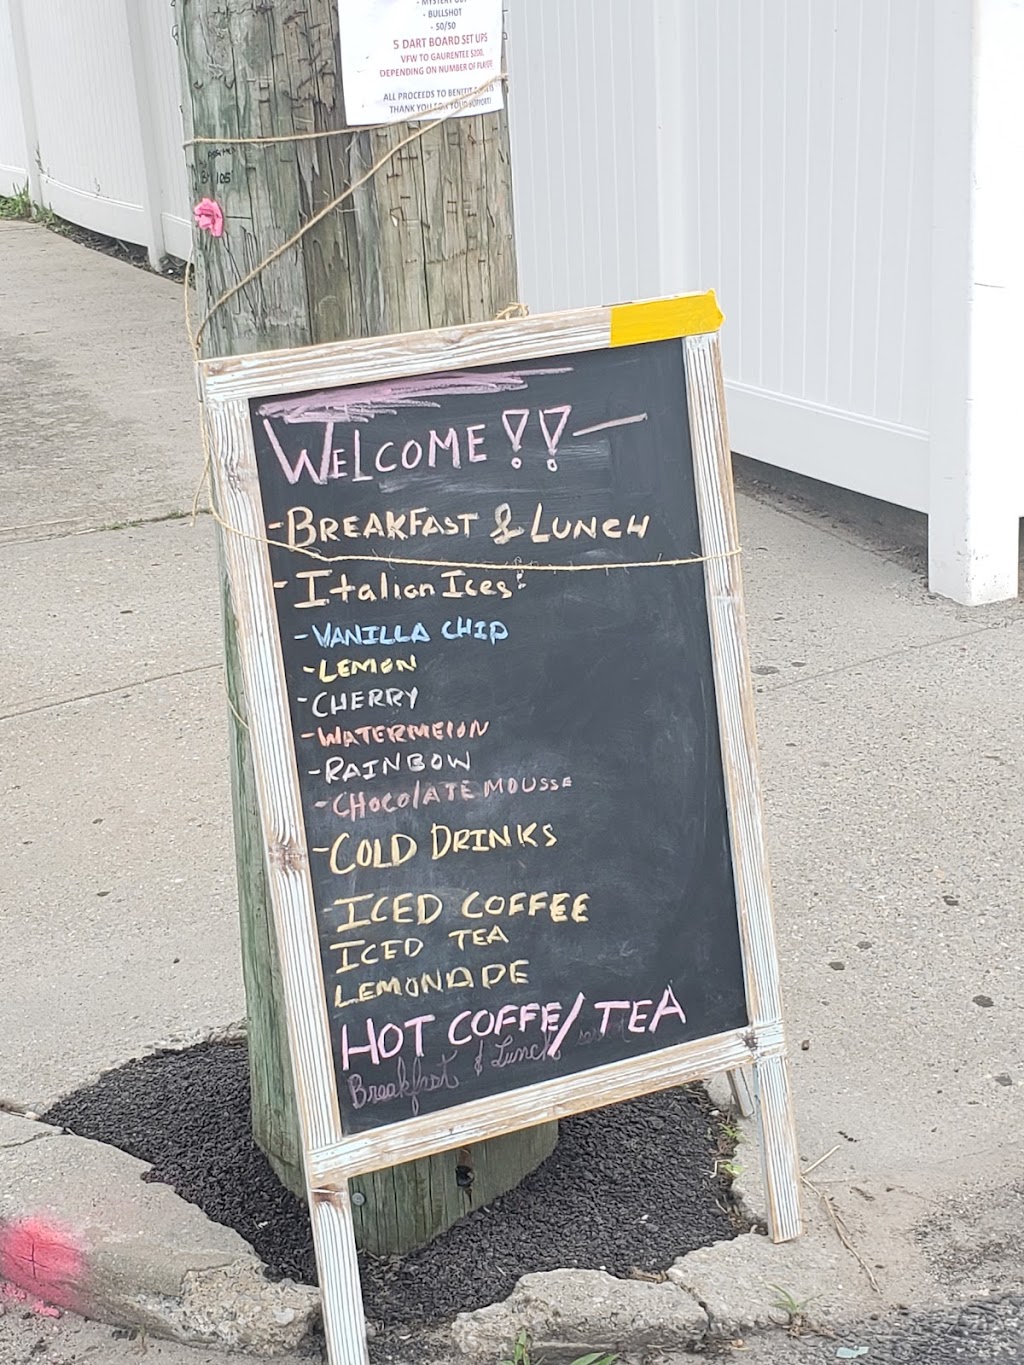 - MYSTERY OUT
- BULLSHOT
- 50/50
5 DART BOARD SET UPS
VFW TO GAURENTEE $200.
DEPENDING ON NUMBER OF
ALL PROCEEDS TO BENEFIT
THANK YOU FOR YOUR SUPPORT!
WELCOME!!
- BREAKFAST & LUNCH
- Italian Ices:
- VANILLA CHIP
- LEMON
- CHERRY
- WATERMELON
- RAINBOW
- CHOCOLATE MOUSSE
- COLD DRINKS
ICED COFFEE
ICED TEA
LEMONADE
HOT COFFE/TEA
Breakfast & Lunch